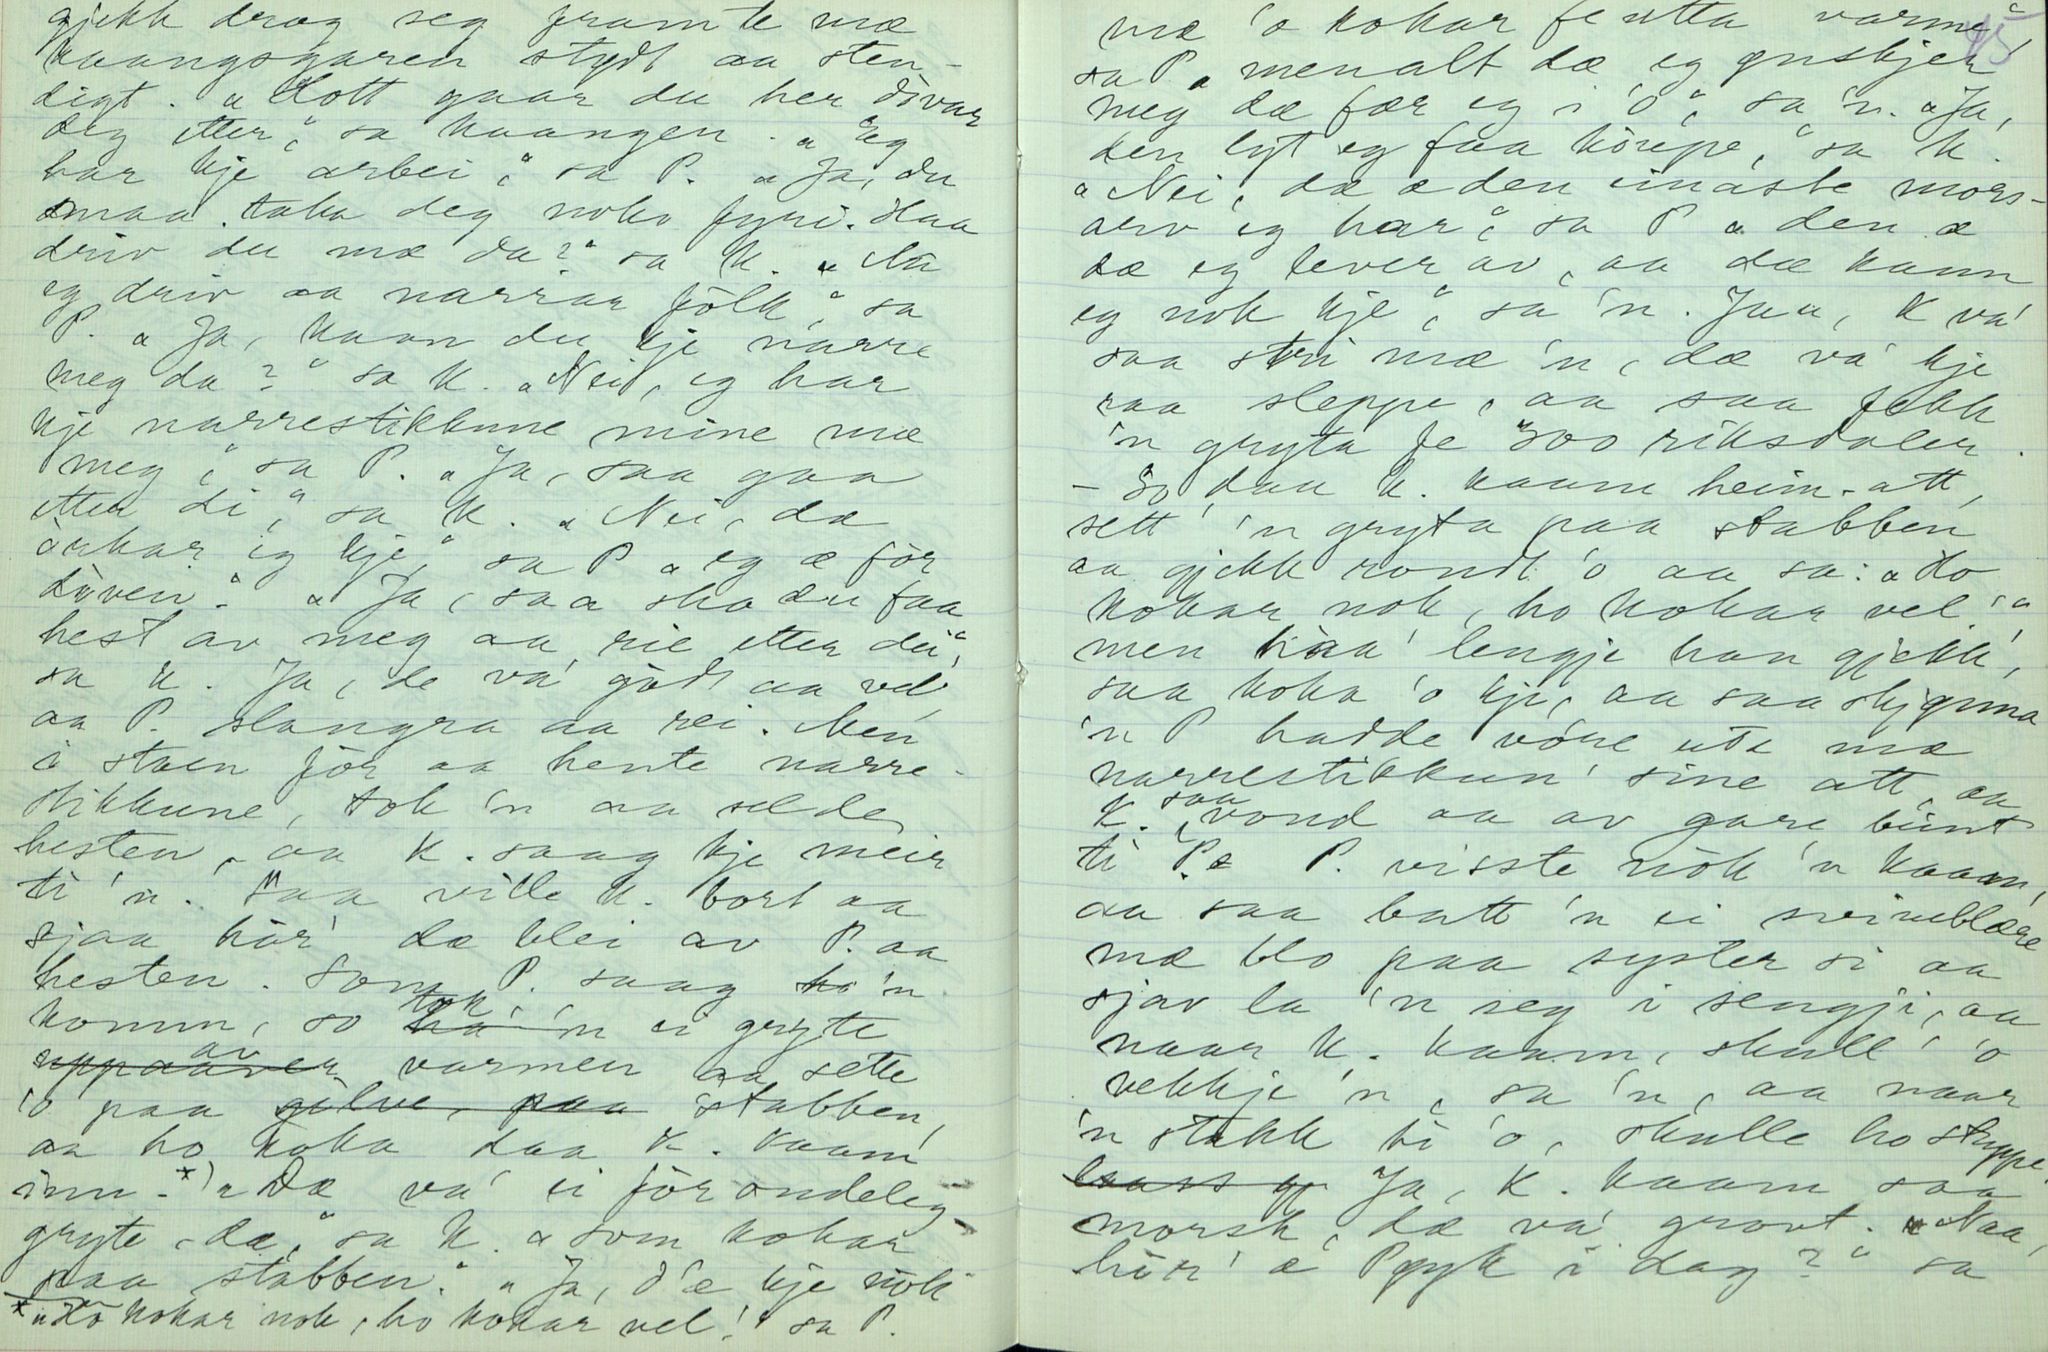 gjekk drog seg framte mæ
kaangsgaren stydt aa sten-
digt. „Kott gaar du her divar
deg etter,“ sa kaangen. „Eg
har kje arbei,“ sa P. „Ja, du
maa taka deg noko fyri. Haa
driv du mæ da?“ sa K. „Aa
eg driv aa narrar fólk,“ sa
P. „Ja, kaan du kje narre
meg da?“ sa K. „Nei, eg har
kje narrestikkune mine mæ
meg,“ sa P. „Ja, saa gaa
etter di,“ sa K. „Nei, dæ
orkar eg kje,“ sa P „eg æ för
döven.“ „Ja, saa ska du faa
hest av meg aa rie etter dei“,
sa K. Ja, de va' gódt aa vel,
aa P. slangra aa rei. Men
i staen för aa hente narre-
stikkune, tok 'n aa selde
hesten, aa K. saag kje meir
ti 'n. Saa ville K. bort aa
sjaa hör' dæ blei av P. aa
hesten. Som P. saag 'n
komm, so tok 'n ei gryte
av varmen aa sette
'o paa stabben,
aa ho koka daa K. kaam
inn. *) „Dæ va' ei förondeleg
gryte, dæ,“ sa K. „som kokar
paa stabben.“ „Ja, d'æ kje nók
* „Ho kokar nok, ho kokar vel!“ sa P.
45
mæ 'o kokar fe utta varme“,
sa P „menalt dæ eg ynskjer
meg dæ fær eg i 'o“, sa 'n. „Ja,
den lyt eg faa köupe,“ sa K.
„Nei, dæ æ den einaste mors-
arv eg har,“ sa P „den æ
dæ eg lever av, aa dæ kann
eg nok kje“, sa 'n. Jaa, K va'
saa stri mæ 'n, dæ va' kje
raa sleppe, aa saa fekk
'n gryta fe 300 riksdaler.
– So daa K. kaam heim-att,
sett 'n gryta paa stabben
aa gjekk rondt 'o aa sa: „Ho
kokar nok, ho kokar vel!“
men haa' lengje han gjekk,
saa koka 'o kje, aa saa skjynna
'n P hadde vóre ute mæ
narrestikkun' sine att, aa
K. saa vond aa av gare beint
ti P. P. visste nók 'n kaam,
aa saa batt 'n ei svineblære
mæ blo paa syster si aa
sjav la 'n seg i sengji, aa
naar K. kaam, skull' 'o
vekkje 'n, sa 'n, aa naar
'n stakk ti 'o, skulle ho stuppe.
Ja, K. kaam saa
morsk, dæ va' grovt. „Naa,
hör' æ P i dag?“ sa